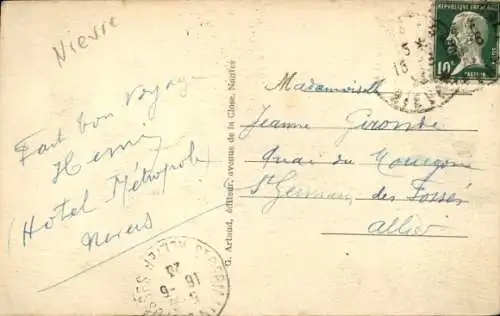 Nievre
Fait bon voyage
Henri
(Hotel Métropole)
Nevers
G. Artaud, éditeur, avenue de la Close, Nantes
REPUBLIQUE FRANÇAISE
10c
Mademoiselle
Jeanne Gironde
Quai du
St Germain des Fossés
Allier
16-6
23
ALLIER